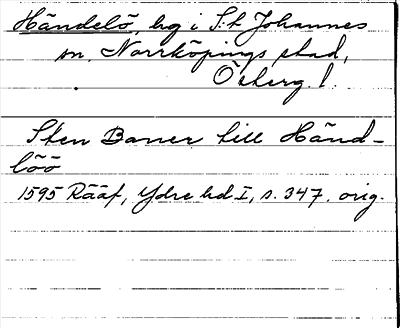 Händelö, hg i S:t Johannes
sn, Norrköpings stad,
Östergl.
Sten Baner till Händ-
löö
1595 Rääf, Ydre hd I, s. 347. orig.